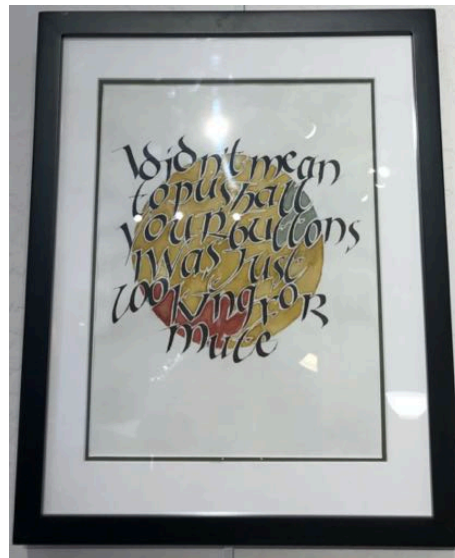 I didn't mean
to push all
YOUR buttons
I was just
looking foR
mute